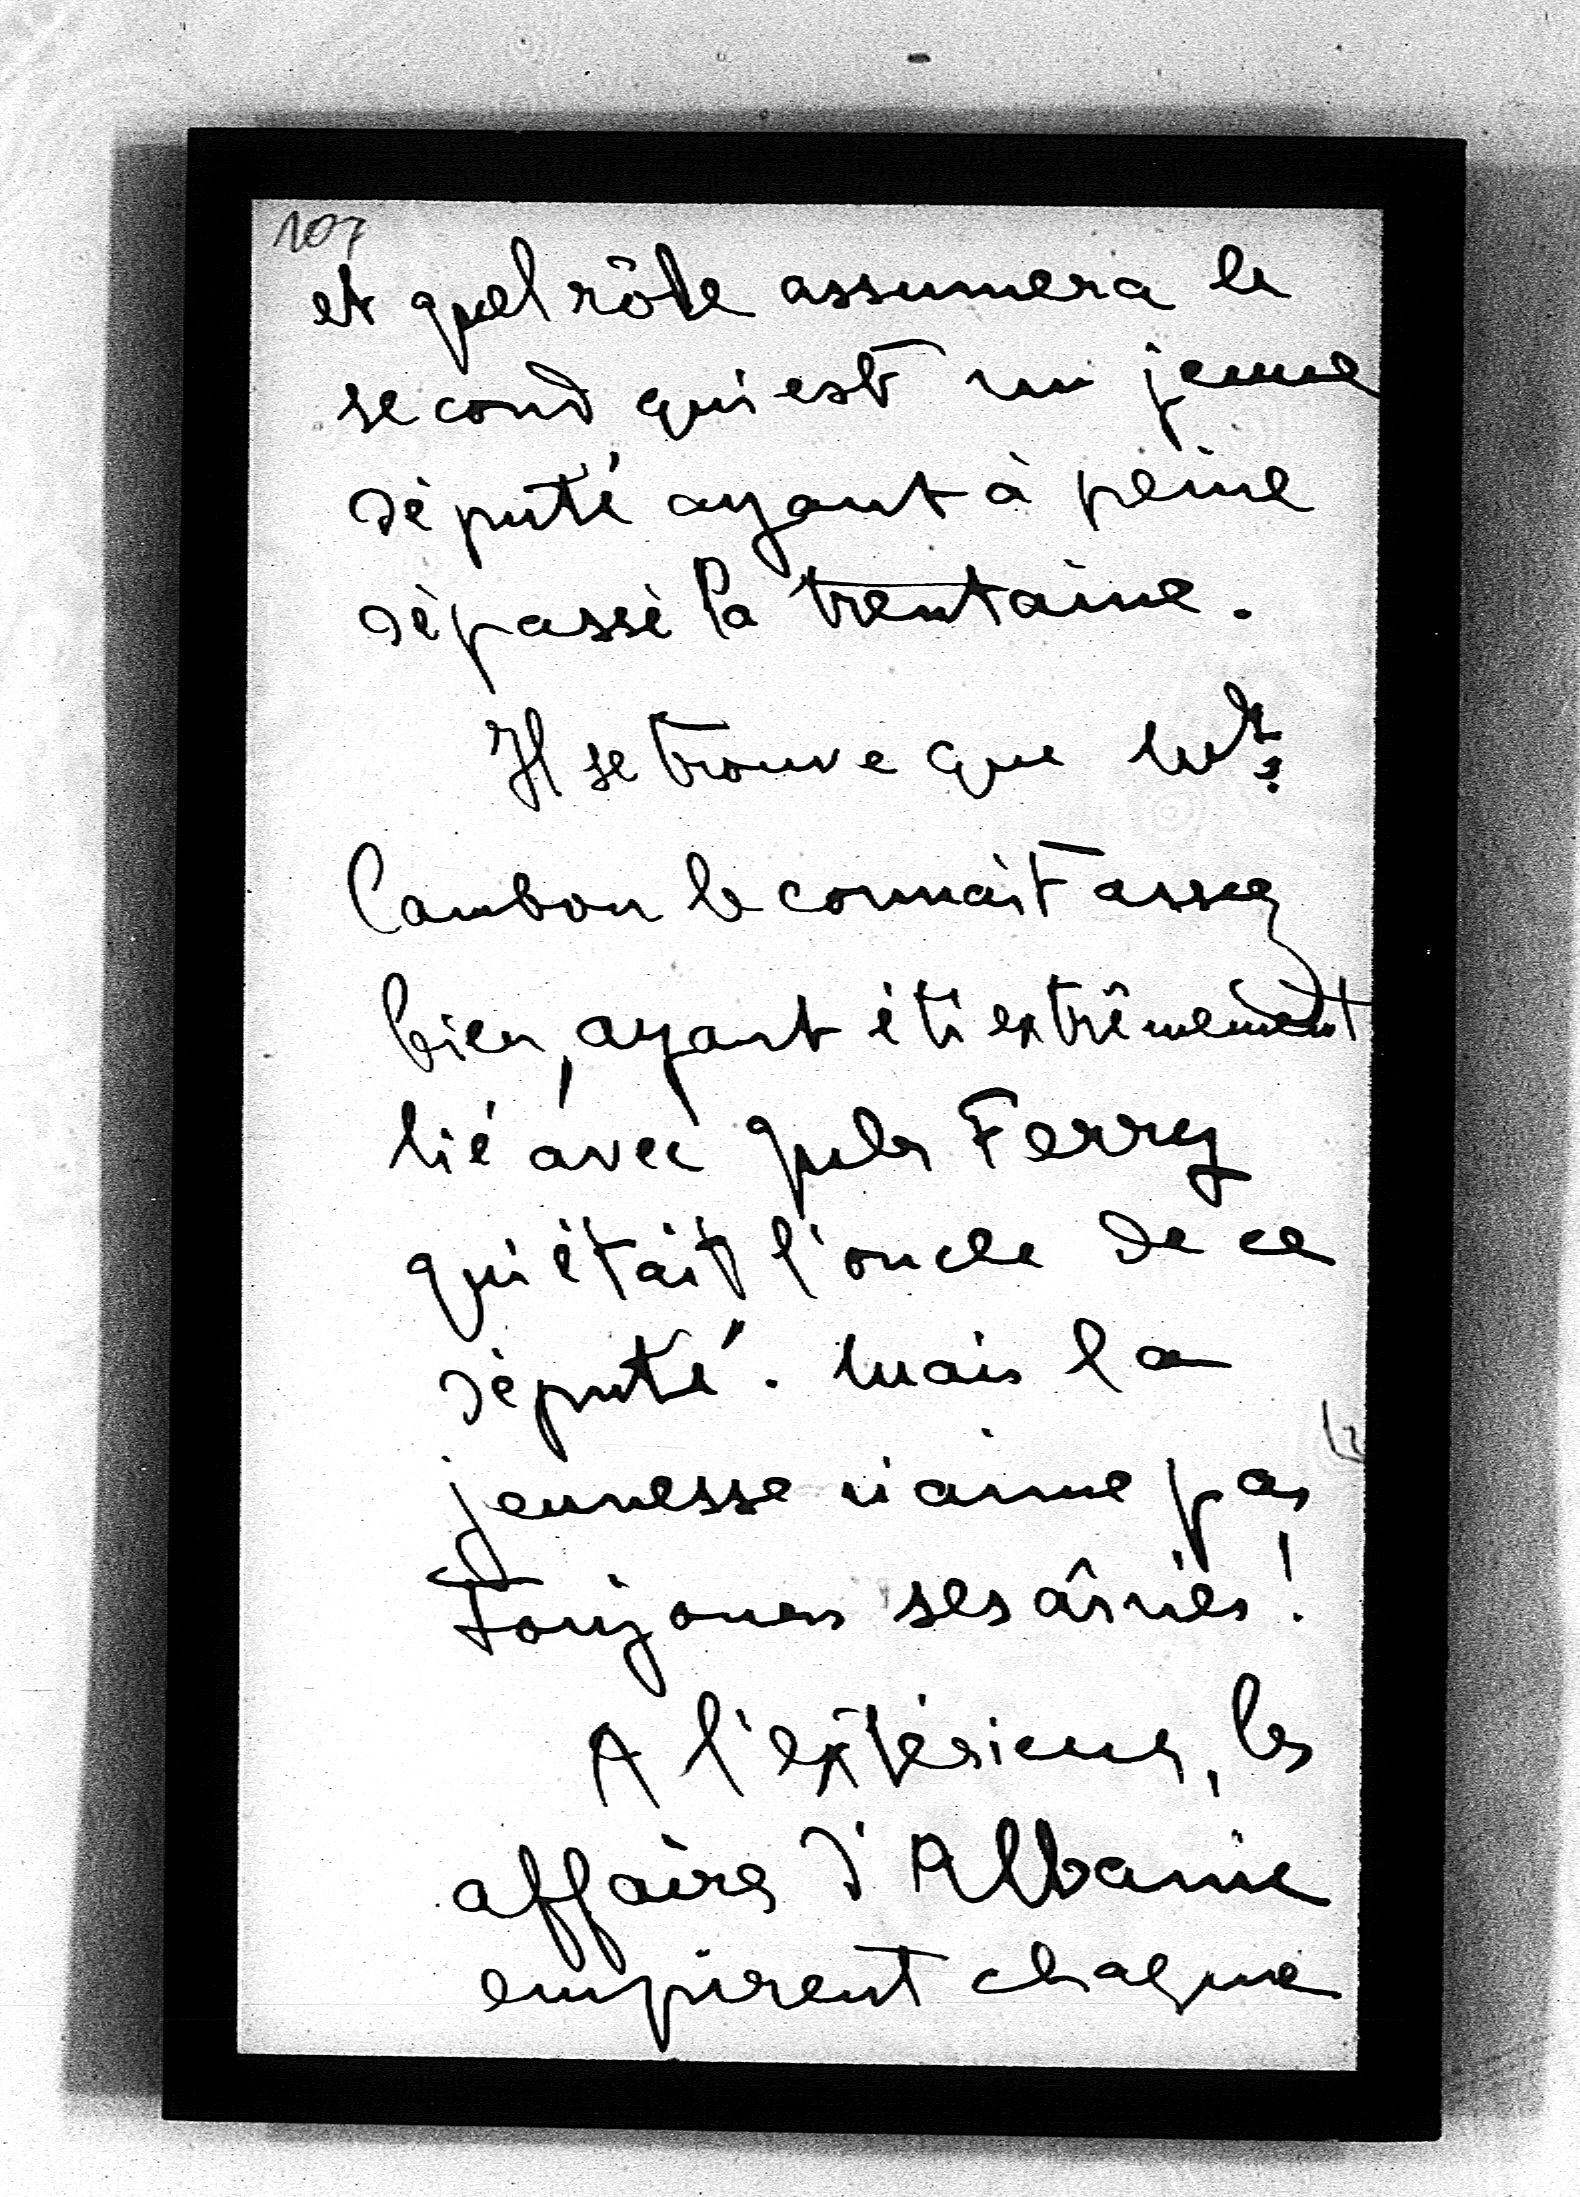 107
et quel rôle assumera le
second qui est un jeune
député ayant à peine
dépassé la trentaine.
Il se trouve que Mr
Cambon le connaît assez
bien, ayant été extrêmement
lié avec Jules Ferry
qui était l'oncle de ce
député. Mais la
jeunesse n'aime pas
toujours ses aînés !
A l'extérieur, les
affaires d'Albanie
empirent chaque